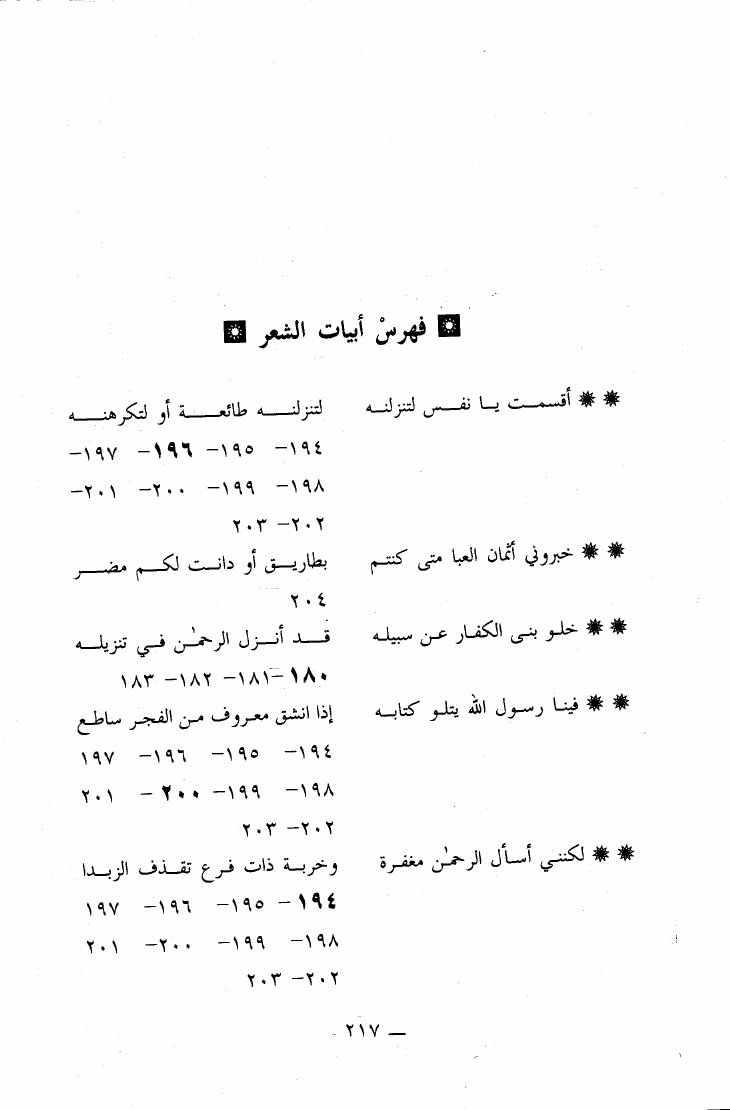 فهرسْ أبيات الشعر
** أقسمت يا نفس لتنزلنه لتنزلنه طائعة أو لتكرهنه
١٩٤– ١٩٥– ١٩٦– ١٩٧–
١٩٨– ١٩٩– ٢٠٠– ٢٠١–
٢٠٢– ٢٠٣
** خبروني أثمان العبا متى كنتم بطاريق أو دانت لكم مضر
٢٠٤
** خلو بنى الكفار عن سبيله قد أنزل الرحمٰن في تنزيله
١٨٠ –١٨١– ١٨٢– ١٨٣
** فينا رسول الله يتلو كتابه إذا انشق معروف من الفجر ساطع
١٩٤– ١٩٥– ١٩٦– ١٩٧
١٩٨– ١٩٩– ٢٠٠ – ٢٠١
٢٠٢– ٢٠٣
** لكنني أسأل الرحمٰن مغفرة وخربة ذات فرع تقذف الزبدا
١٩٤ – ١٩٥– ١٩٦– ١٩٧
١٩٨– ١٩٩– ٢٠٠– ٢٠١
٢٠٢– ٢٠٣
— ٢١٧